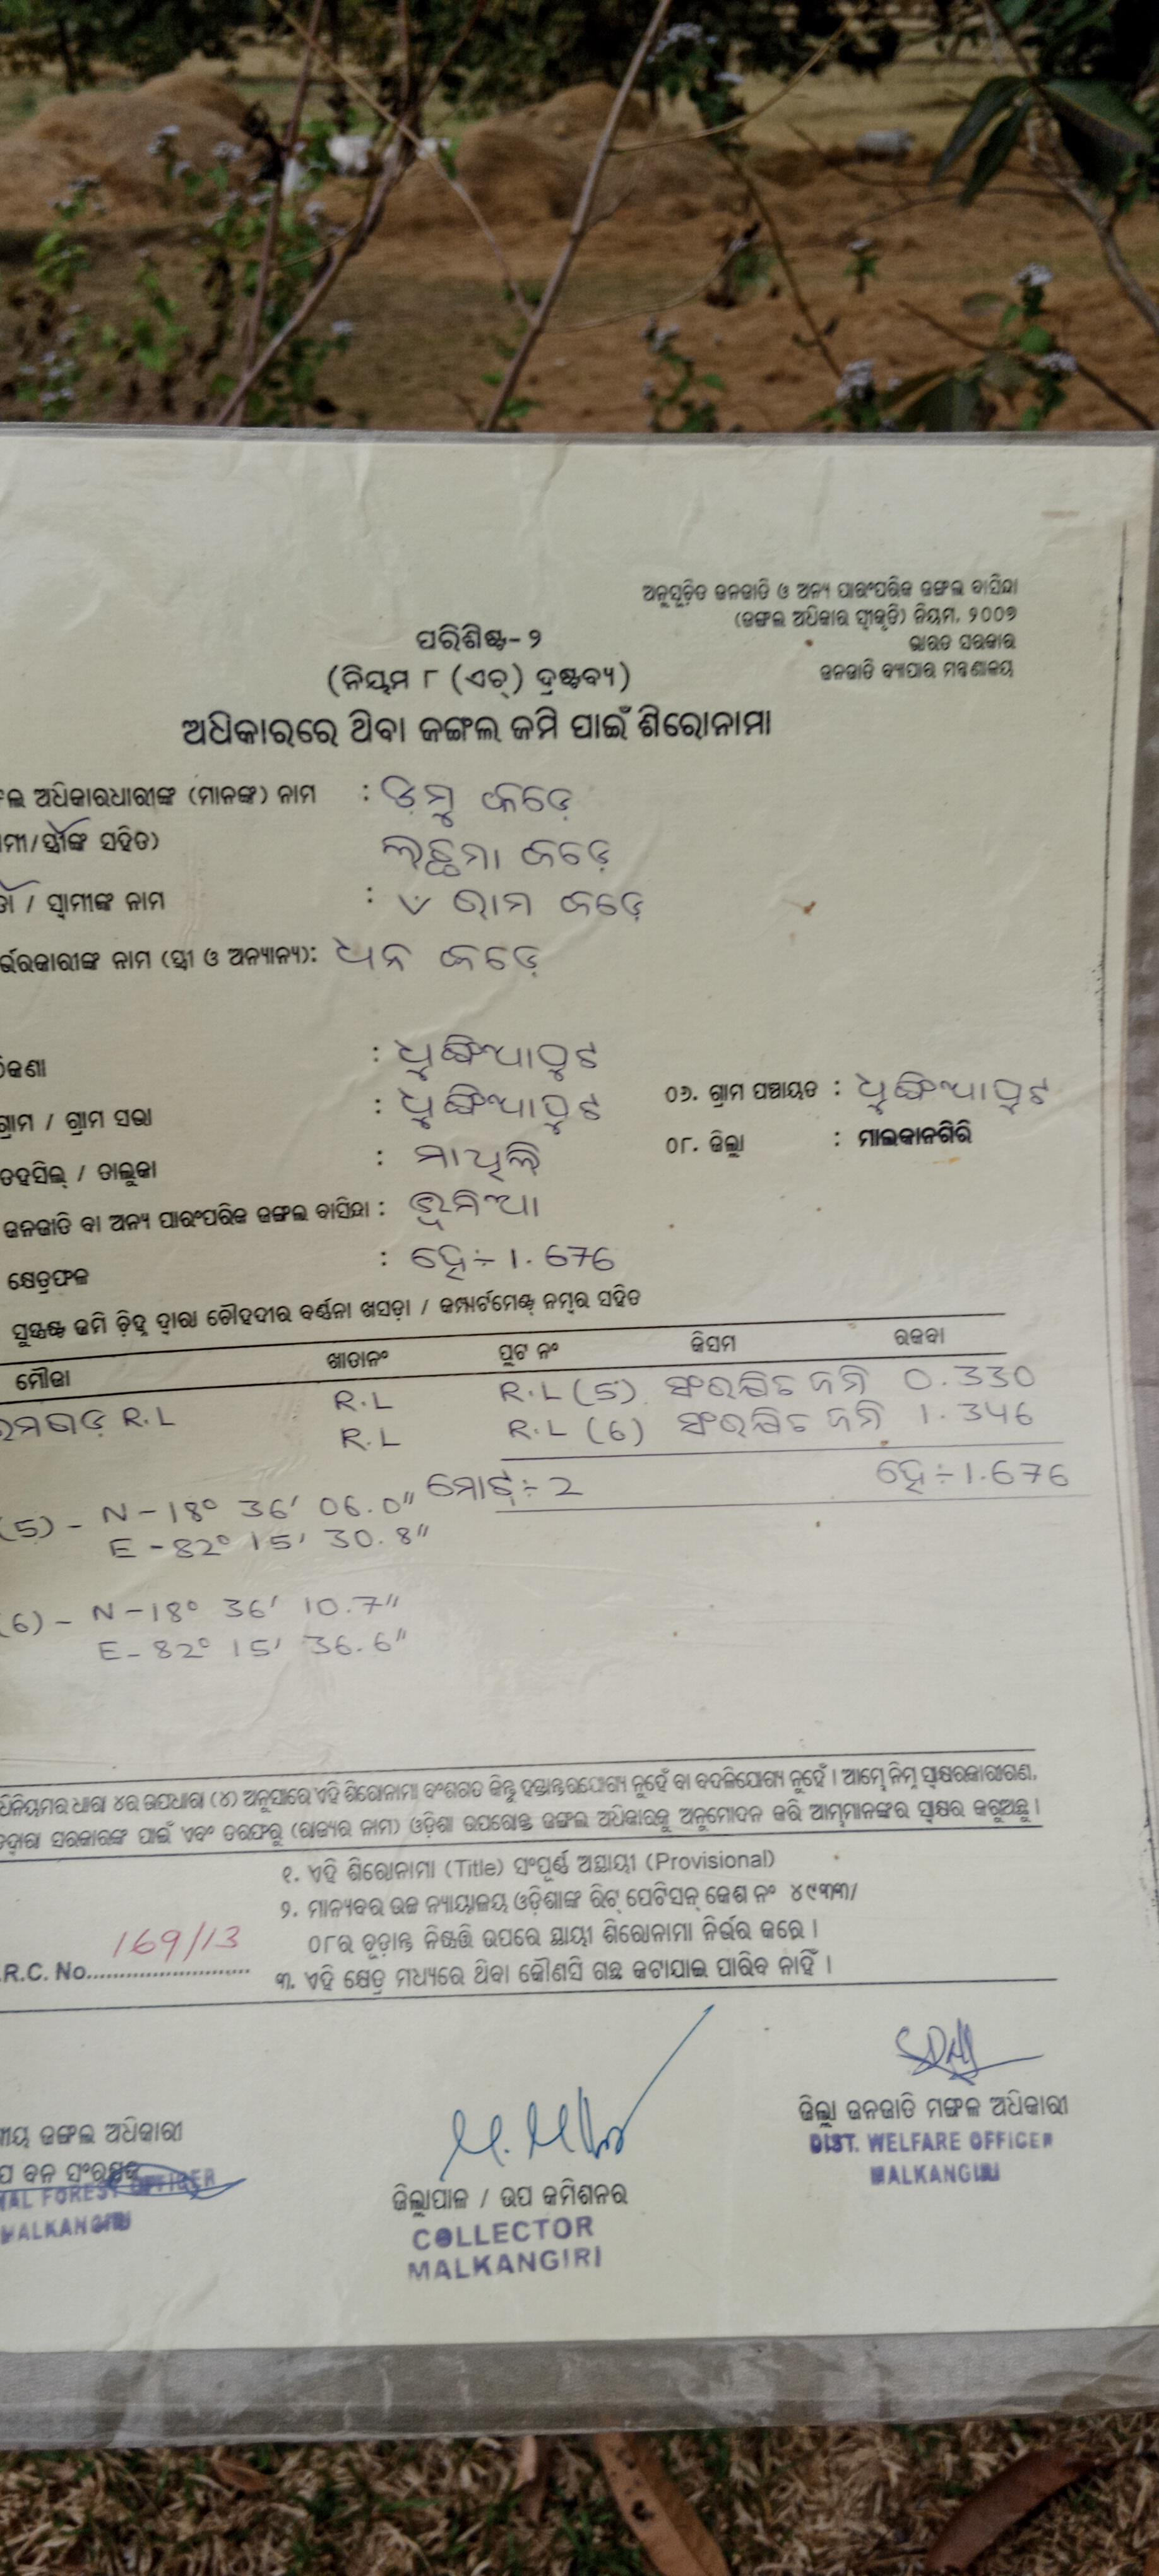 ଅନୁସୂଚିତ ଜନଜାତି ଓ ଅନ୍ୟ ପାରଂପରିକ ଜଙ୍ଗଲ ବାସିନ୍ଦା
(ଜଙ୍ଗଲ ଅଧିକାର ସ୍ୱୀକୃତି) ନିୟମ, ୨୦୦୭
ଭାରତ ସରକାର
ଜନଜାତି ବ୍ୟାପାର ମନ୍ତ୍ରଣାଳୟ
ପରିଶିଷ୍ଟ-୨
(ନିୟମ ୮ (ଏଚ୍) ଦ୍ରଷ୍ଟବ୍ୟ)
ଅଧିକାରରେ ଥିବା ଜଙ୍ଗଲ ଜମି ପାଇଁ ଶିରୋନାମା
ଅଧିକାରଧାରୀଙ୍କ (ମାନଙ୍କ) ନାମ : ଡମୁ କଡ଼େ
ମୀ/ସ୍ତ୍ରୀଙ୍କ ସହିତ) ଲଛମା କଡ଼େ
/ ସ୍ୱାମୀଙ୍କ ନାମ : ରାମ କଡ଼େ
ର୍ଭରକାରୀଙ୍କ ନାମ (ସ୍ତ୍ରୀ ଓ ଅନ୍ୟାନ୍ୟ): ଧନ କଡ଼େ
କଣା : ଧୁଙ୍ଗିଆପୁଟ
ଗ୍ରାମ / ଗ୍ରାମ ସଭା : ଧୁଙ୍ଗିଆପୁଟ ୦୬. ଗ୍ରାମ ପଞ୍ଚାୟତ : ଧୁଙ୍ଗିଆପୁଟ
ତହସିଲ୍ / ତାଲୁକା : ମାଥିଲି ୦୮. ଜିଲ୍ଲା : ମାଲକାନଗିରି
ଜନଜାତି ବା ଅନ୍ୟ ପାରଂପରିକ ଜଙ୍ଗଲ ବାସିନ୍ଦା : ଭୂମିଆ
କ୍ଷେତ୍ରଫଳ : ହେ÷1.676
ସୁସ୍ପଷ୍ଟ ଜମି ଚିହ୍ନ ଦ୍ୱାରା ଚୌହଦୀର ବର୍ଣ୍ଣନା ଖସଡ଼ା / କମ୍ପାର୍ଟମେଣ୍ଟ୍ ନମ୍ବର ସହିତ
ମୌଜା ଖାତାନଂ ପ୍ଲଟ ନଂ କିସମ ରକବା
ରମଗଡ଼ R.L R.L R.L (5) ସଂରକ୍ଷିତ ଜମି 0.330
R.L R.L (6) ସଂରକ୍ଷିତ ଜମି 1.346
ମୋଟ୍÷2 ହେ÷1.676
(5) - N-18° 36' 06.0"
E-82° 15' 30.8"
(6) - N-18° 36' 10.7"
E-82° 15' 36.6"
ଧିନିୟମର ଧାରା ୪ର ଉପଧାରା (୪) ଅନୁସାରେ ଏହି ଶିରୋନାମା ବଂଶଗତ କିନ୍ତୁ ହସ୍ତାନ୍ତରଯୋଗ୍ୟ ନୁହେଁ ବା ବଦଳିଯୋଗ୍ୟ ନୁହେଁ । ଆମ୍ଭେ ନିମ୍ନ ସ୍ୱାକ୍ଷରକାରୀଗଣ,
ତଦ୍ୱାରା ସରକାରଙ୍କ ପାଇଁ ଏବଂ ତରଫରୁ (ରାଜ୍ୟର ନାମ) ଓଡ଼ିଶା ଉପରୋକ୍ତ ଜଙ୍ଗଲ ଅଧିକାରକୁ ଅନୁମୋଦନ କରି ଆମ୍ଭମାନଙ୍କର ସ୍ୱାକ୍ଷର କରୁଅଛୁ ।
୧. ଏହି ଶିରୋନାମା (Title) ସଂପୂର୍ଣ୍ଣ ଅସ୍ଥାୟୀ (Provisional)
୨. ମାନ୍ୟବର ଉଚ୍ଚ ନ୍ୟାୟାଳୟ ଓଡ଼ିଶାଙ୍କ ରିଟ୍ ପେଟିସନ୍ କେଶ ନଂ ୪୯୩୩/
୦୮ର ଚୂଡ଼ାନ୍ତ ନିଷ୍ପତ୍ତି ଉପରେ ସ୍ଥାୟୀ ଶିରୋନାମା ନିର୍ଭର କରେ ।
.R.C. No. 169/13
୩. ଏହି କ୍ଷେତ୍ର ମଧ୍ୟରେ ଥିବା କୌଣସି ଗଛ କଟାଯାଇ ପାରିବ ନାହିଁ ।
ଜିଲ୍ଲା ଜନଜାତି ମଙ୍ଗଳ ଅଧିକାରୀ
DIST. WELFARE OFFICER
MALKANGIRI
ୀୟ ଜଙ୍ଗଲ ଅଧିକାରୀ
ପ ବନ ସଂରକ୍ଷକ
NAL FOREST OFFICER
MALKANGIRI
ଜିଲ୍ଲାପାଳ / ଉପ କମିଶନର
COLLECTOR
MALKANGIRI